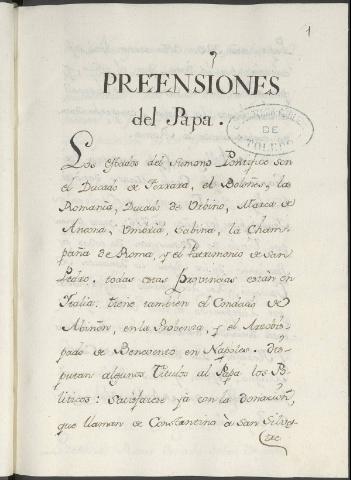 1
PRETENSIONES
del Papa.
DE
TOLEDO
Los estados del Sumono Pontifice son
el Ducado de Ferrara, el Boloñes, la
Romania, Ducado de Urbino, Marca de
Ancona, Umbria, Sabina, la Cham-
paña de Roma, y el Patrimonio de San
Pedro. todas estas Provincias estan en
Italia: tiene tambien el Condado de
Abiñon, en la Probenza, y el Arzobis-
pado de Benevento en Napoles. dis-
putan algunos Titulos al Papa los Po-
liticos: Satisfacese ya con la donacion,
que llaman de Constantino à San Silves-
tre